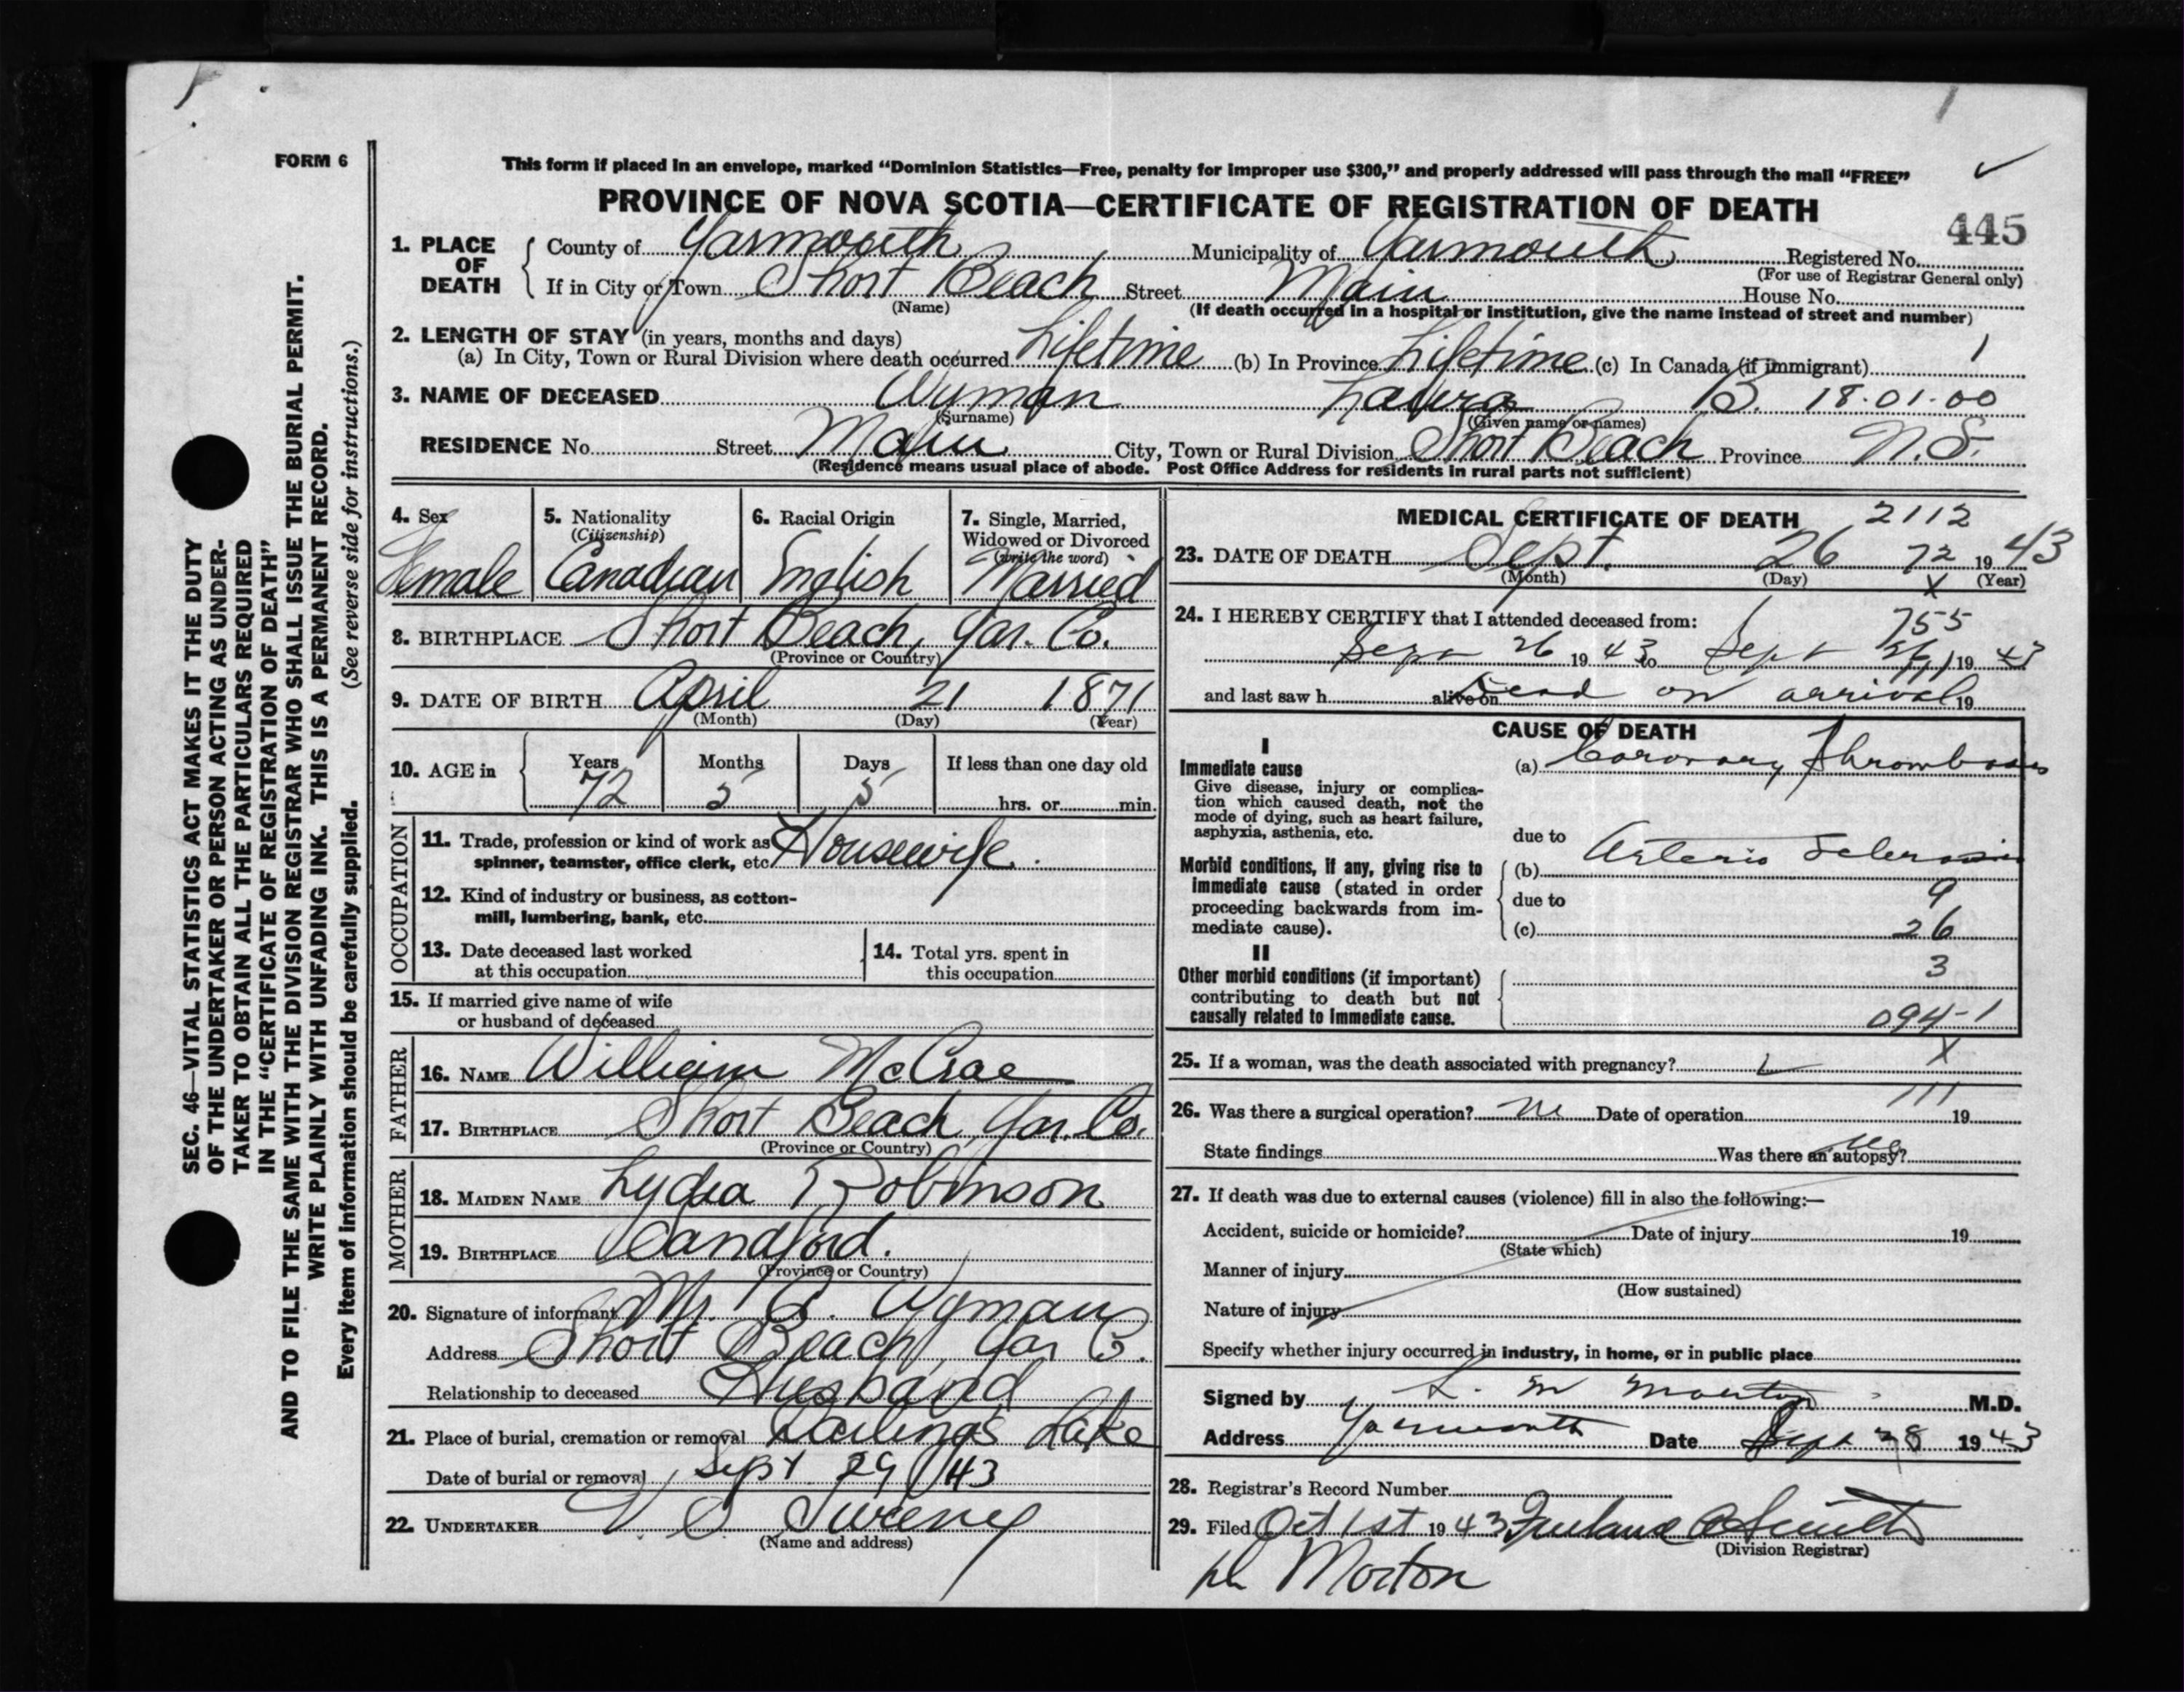 FORM 6
This form if placed in an envelope, marked “Dominion Statistics—Free, penalty for improper use $300,” and properly addressed will pass through the mail “FREE”
PROVINCE OF NOVA SCOTIA—CERTIFICATE OF REGISTRATION OF DEATH
445
1. PLACE OF DEATH County of Yarmouth Municipality of Yarmouth Registered No.
(For use of Registrar General only)
If in City or Town Short Beach Street Main House No.
(Name) (If death occurred in a hospital or institution, give the name instead of street and number)
2. LENGTH OF STAY (in years, months and days)
(a) In City, Town or Rural Division where death occurred Lifetime (b) In Province Lifetime (c) In Canada (if immigrant) 1
3. NAME OF DECEASED Wyman Laura B. 18.01.00
(Surname) (Given name or names)
RESIDENCE No. Street Main City, Town or Rural Division Short Beach Province N.S.
(Residence means usual place of abode. Post Office Address for residents in rural parts not sufficient)
4. Sex 5. Nationality 6. Racial Origin 7. Single, Married,
(Citizenship) Widowed or Divorced
(write the word)
Female Canadian English Married
8. BIRTHPLACE Short Beach, Yar. Co.
(Province or Country)
9. DATE OF BIRTH April 21 1871
(Month) (Day) (Year)
10. AGE in Years Months Days If less than one day old
72 5 5 hrs. or min.
OCCUPATION
11. Trade, profession or kind of work as Housewife.
spinner, teamster, office clerk, etc.
12. Kind of industry or business, as cotton-
mill, lumbering, bank, etc.
13. Date deceased last worked
at this occupation
14. Total yrs. spent in
this occupation
15. If married give name of wife
or husband of deceased
FATHER
16. NAME William McCrae
17. BIRTHPLACE Short Beach, Yar. Co.
(Province or Country)
MOTHER
18. MAIDEN NAME Lydia Robinson
19. BIRTHPLACE Sandford.
(Province or Country)
20. Signature of informant Mr. Wyman
Address Short Beach Yar Co.
Relationship to deceased Husband
21. Place of burial, cremation or removal Darlings Lake
Date of burial or removal Sept 29/43
22. UNDERTAKER V. S. Sweeny
(Name and address)
MEDICAL CERTIFICATE OF DEATH 2112
23. DATE OF DEATH Sept. 26 72 19 43
(Month) (Day) X (Year)
24. I HEREBY CERTIFY that I attended deceased from: 755
Sept 26 19 43 to Sept 26 19 43
and last saw h alive on Dead on arrival 19
CAUSE OF DEATH
I
Immediate cause (a) Coronary Thrombosis
Give disease, injury or complica-
tion which caused death, not the
mode of dying, such as heart failure,
asphyxia, asthenia, etc.
due to
Morbid conditions, if any, giving rise to
immediate cause (stated in order
proceeding backwards from im-
mediate cause).
(b) Arterio Sclerosis
due to 9
(c) 26
II
Other morbid conditions (if important)
contributing to death but not
causally related to immediate cause.
3
094-1
25. If a woman, was the death associated with pregnancy? X
26. Was there a surgical operation? no Date of operation 111 19
State findings Was there an autopsy? no
27. If death was due to external causes (violence) fill in also the following:—
Accident, suicide or homicide? Date of injury 19
(State which)
Manner of injury
(How sustained)
Nature of injury
Specify whether injury occurred in industry, in home, or in public place
Signed by L. M Morton M.D.
Address Yarmouth Date Sept 28 19 43
28. Registrar's Record Number
29. Filed Oct 1st 19 43 Smith
(Division Registrar)
Morton
SEC. 46—VITAL STATISTICS ACT MAKES IT THE DUTY
OF THE UNDERTAKER OR PERSON ACTING AS UNDER-
TAKER TO OBTAIN ALL THE PARTICULARS REQUIRED
IN THE “CERTIFICATE OF REGISTRATION OF DEATH”
AND TO FILE THE SAME WITH THE DIVISION REGISTRAR WHO SHALL ISSUE THE BURIAL PERMIT.
WRITE PLAINLY WITH UNFADING INK. THIS IS A PERMANENT RECORD.
Every item of information should be carefully supplied. (See reverse side for instructions.)